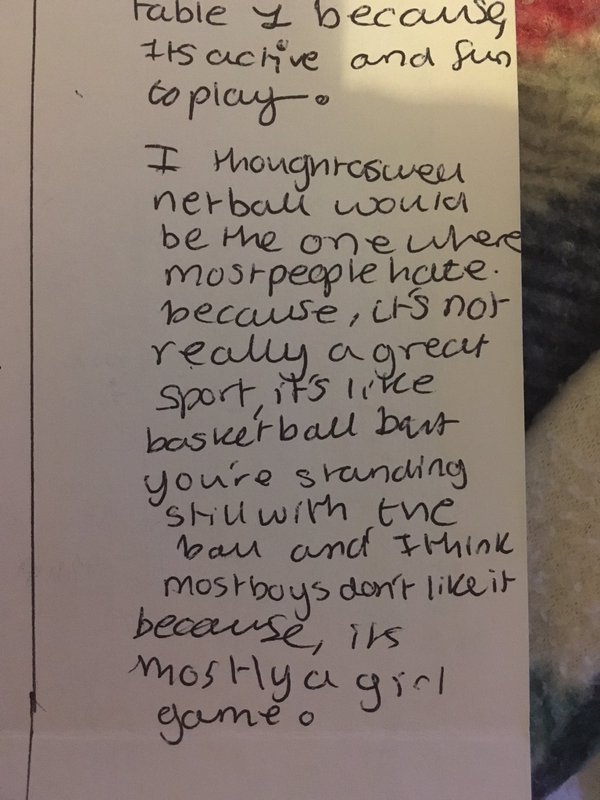 table 1 because,
its active and fun
to play.
I thought aswell
netball would
be the one where
most people hate.
because, it's not
really a great
sport, it's like
basketball but
you're standing
still with the
ball and I think
most boys don't like it
because, its
mostly a girl
game.